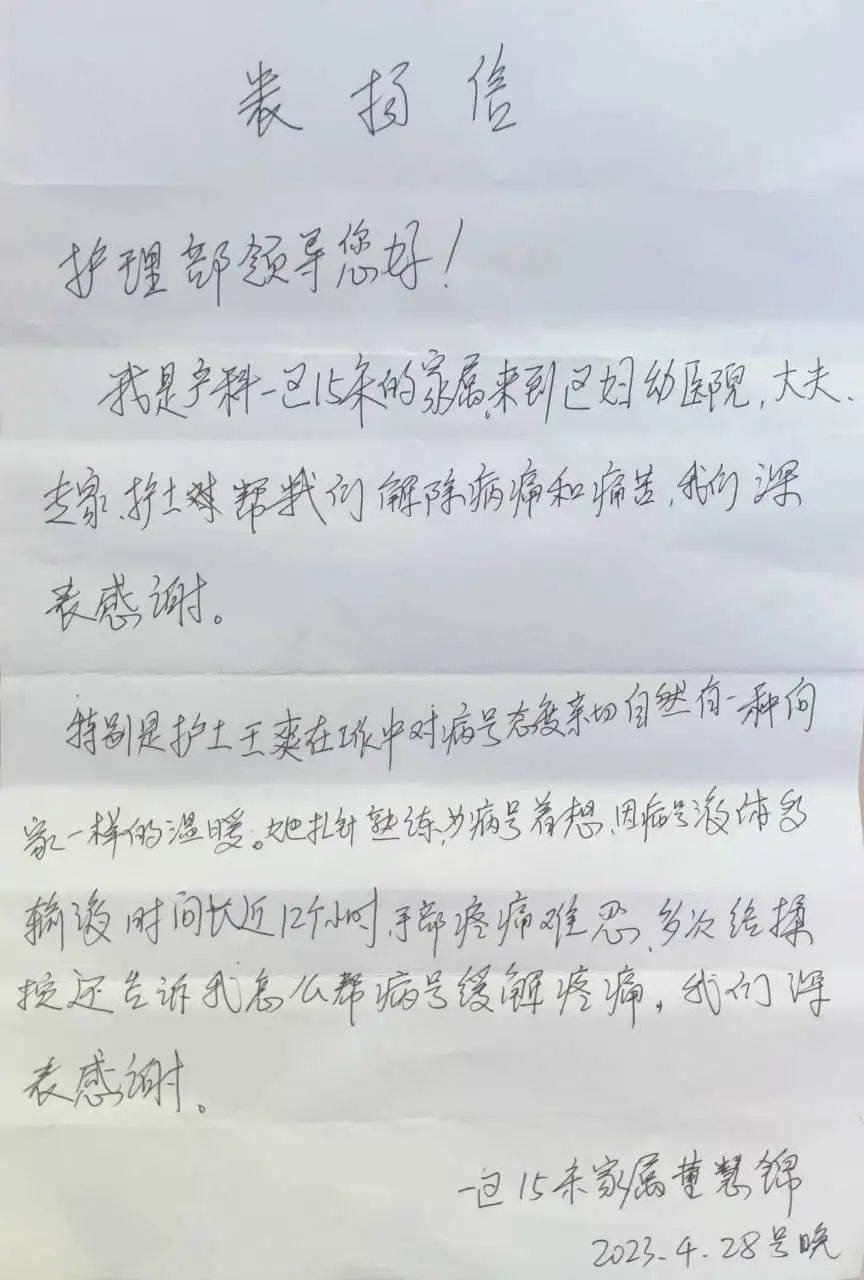 表扬信
护理部领导您好！
我是产科一区15床的家属。来到区妇幼医院，大夫、
专家、护士对帮我们解除病痛和痛苦，我们深
表感谢。
特别是护士王爽在工作中对病号态度亲切自然有一种向
家一样的温暖。她扎针熟练，为病号着想，因病号液体多
输液时间长近12个小时，手部疼痛难忍，多次给揉
按还告诉我怎么帮病号缓解疼痛，我们深
表感谢。
一区15床家属董慧锦
2023.4.28号晚